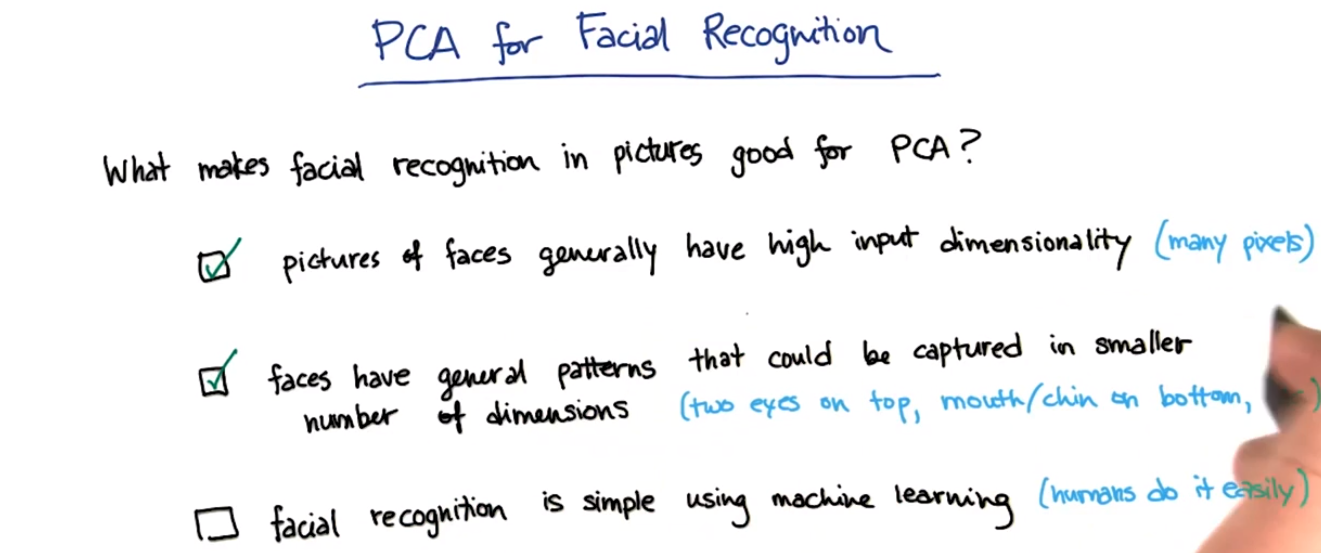 PCA for Facial Recognition
What makes facial recognition in pictures good for PCA?
pictures of faces generally have high input dimensionality (many pixels)
faces have general patterns that could be captured in smaller
number of dimensions (two eyes on top, mouth/chin on bottom, )
facial recognition is simple using machine learning (humans do it easily)